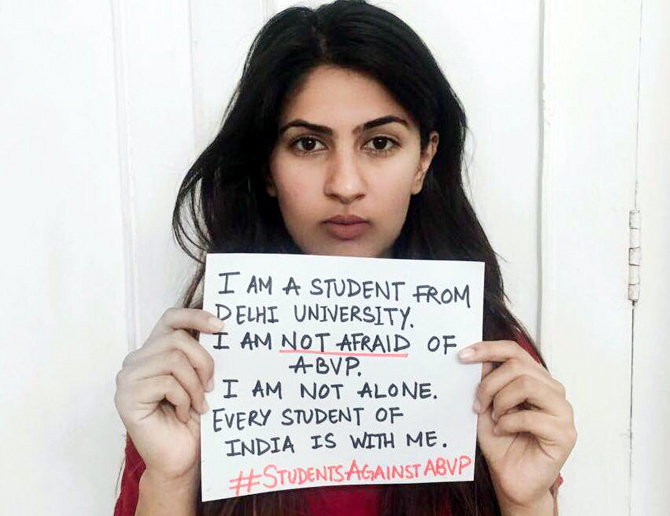 I AM A STUDENT FROM
DELHI UNIVERSITY.
I AM NOT AFRAID OF
ABVP.
I AM NOT ALONE.
EVERY STUDENT OF
INDIA IS WITH ME.
#STUDENTSAGAINSTABVP